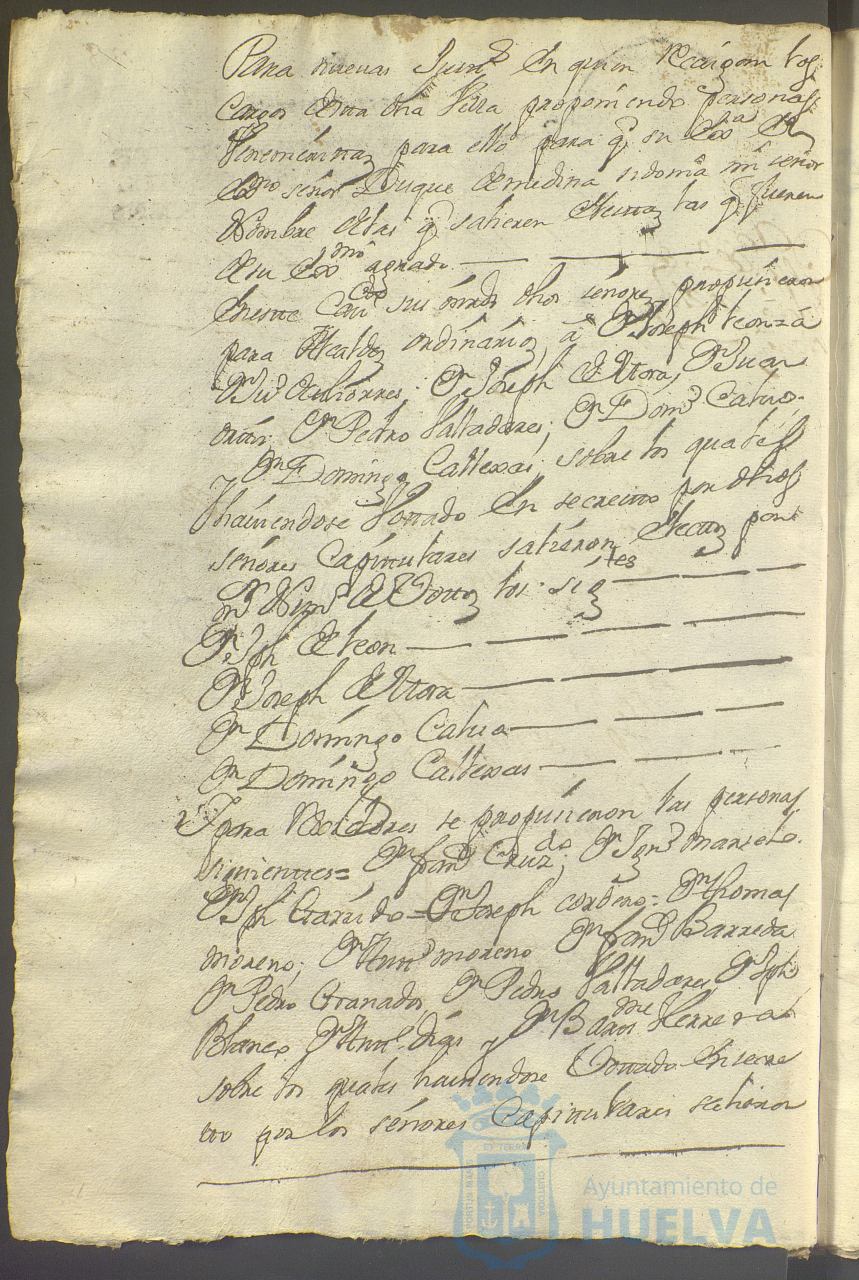 Para nuevas Just.ª en quien Recaigan los
Cargos desta dha Villa proponiendo personas
venemeritas para ello para q.e su Exª el
Exmo señor Duque de medina sidonia mi señor
Nombre de las q.e salieren electas las q.e fueren
de su Exmo agrado
en este Cavdo sus mrds dhos señores propusieron
para Alcaldes ordinarios, a Dn Joseph leon: a
Dn Juº Gutierres: Dn Joseph de Mora, Dn Juan
Dn Pedro Valladares; Dn Domº Calvo
y Dn Domingo Calletas, sobre los quales
haviendose Votado en secreto por dhos
señores Capitulares salieron electos por
mr Numº de Votos los sigtes
Dn Jph de leon
Dn Joseph de Mora
Dn Domingo Calvo
Dn Domingo Calletas
Y para Rexidores se propusieron las personas
siguientes= Dn Franº Cruzdo; Dn Ignº marselo
Dn Jph Garrido= Dn Joseph cordero= Dn thomas
moreno; Dn Anttº moreno Dn Franº Barreda
Dn Pedro Granados Dn Pedro Valladares, Dn Jph
Blanco Dn Anttº Dias y Dn Barme Herrera
sobre los quales haviendose Votado en secre
to por los señores Capitulares salieron
Ayuntamiento de
HUELVA